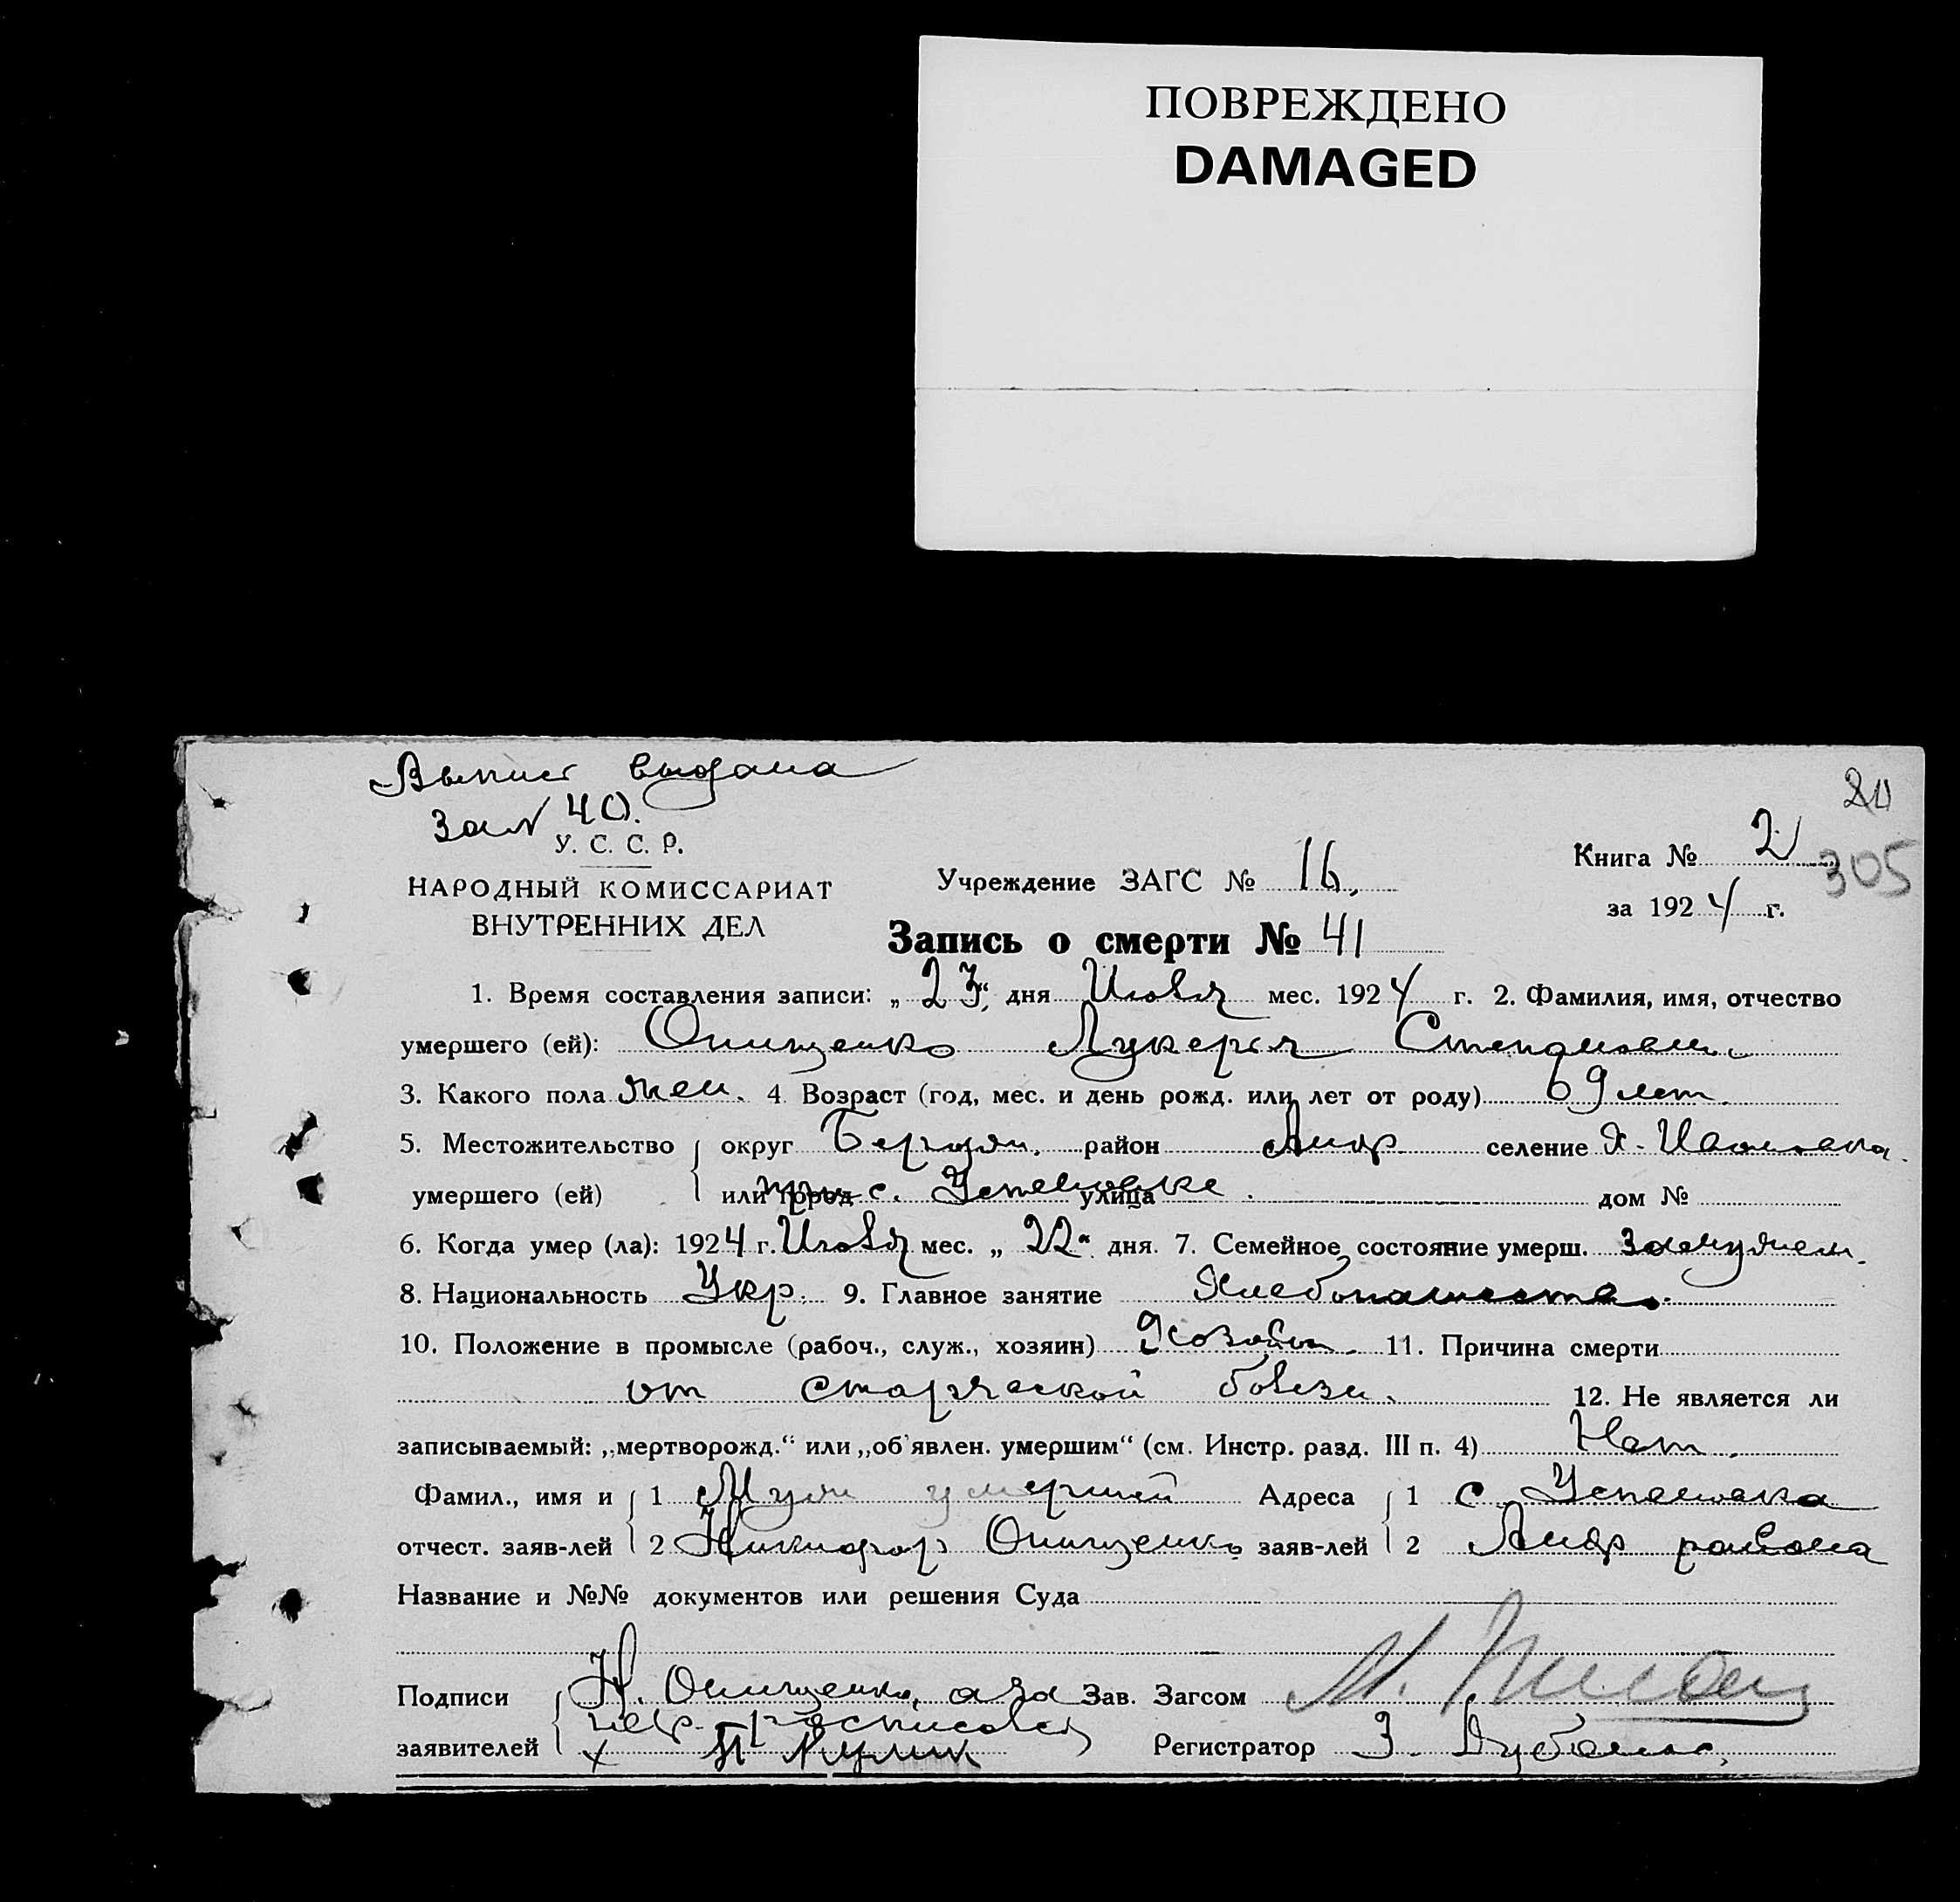 ПОВРЕЖДЕНО
DAMAGED
Выпись выдана
за № 40.
20
У. С. С. Р.
НАРОДНЫЙ КОМИССАРИАТ
ВНУТРЕННИХ ДЕЛ
Учреждение ЗАГС № 16.
Книга № 2
305
за 1924 г.
Запись о смерти № 41
1. Время составления записи: „23“ дня Июля мес. 1924 г. 2. Фамилия, имя, отчество
умершего (ей): Онищенко Лукерья Степановна
3. Какого пола жен. 4 Возраст (год, мес. и день рожд. или лет от роду) 69 лет.
5. Местожительство округ Бердян. район Андр. селение х. Ивановка.
умершего (ей) или город при с. Успеновке улица дом №
6. Когда умер (ла): 1924 г. Июля мес. „22“ дня. 7. Семейное состояние умерш. замужем.
8. Национальность Укр. 9. Главное занятие Хлебопашество.
10. Положение в промысле (рабоч., служ., хозяин) Хозяйка. 11. Причина смерти
от старческой болезни. 12. Не является ли
записываемый: „мертворожд.“ или „об'явлен. умершим“ (см. Инстр. разд. III п. 4) Нет.
Фамил., имя и 1 Муж умершей Адреса 1 с Успеновка
отчест. заяв-лей 2 Никифор Онищенко заяв-лей 2 Андр района
Название и №№ документов или решения Суда
Подписи Н. Онищенко, а за Зав. Загсом М.
негр. росписался
заявителей Регистратор З.